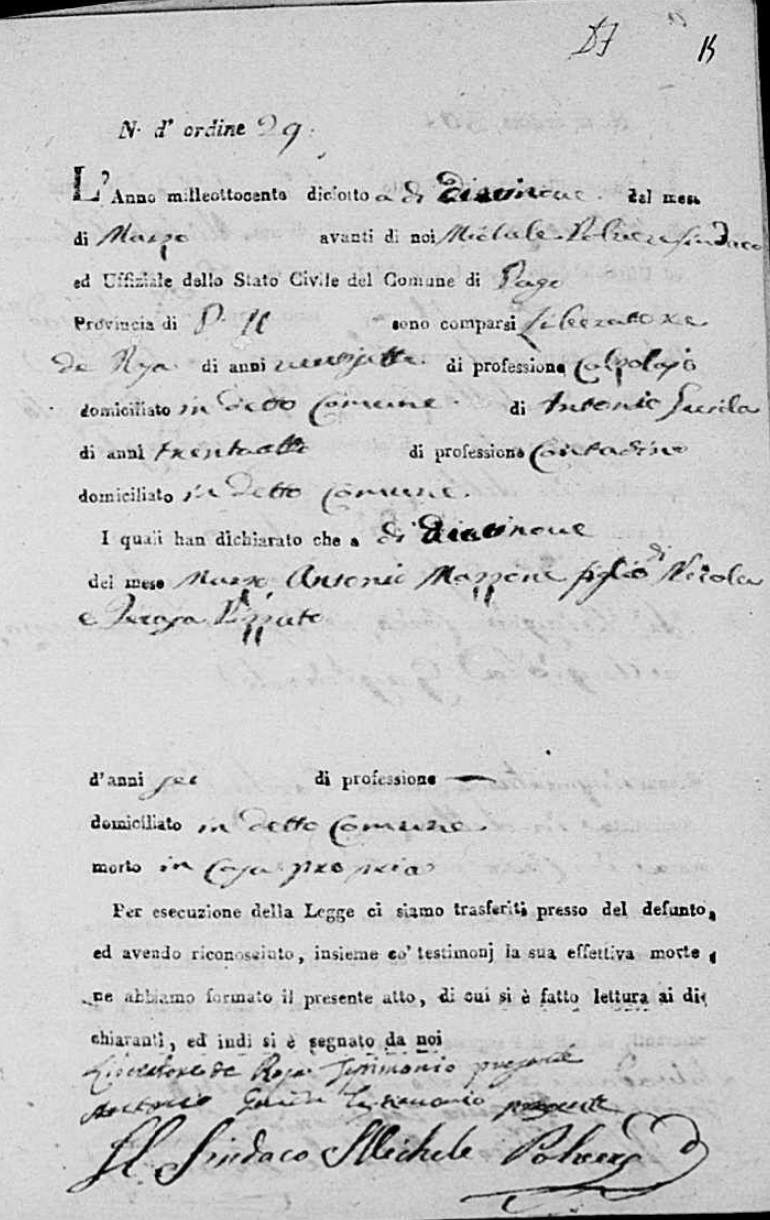 N. d' ordine 29.
L'Anno milleottocento diciotto a di del mese
di Marzo avanti di noi Michele Polvere Sindaco
ed Uffiziale dello Stato Civile del Comune di Pago
Provincia di P. U. sono comparsi Liberatore
de Roja di anni di professione Calzolajo
domiciliato in detto Comune. di Antonio
di anni trentaotto di professione Contadino
domiciliato in detto Comune.
I quali han dichiarato che a di
del mese Marzo Antonio Mazzone figlio di Nicola
e
d'anni sei di professione —
domiciliato in detto Comune
morto in Casa propria
Per esecuzione della Legge ci siamo trasferiti presso del defunto,
ed avendo riconosciuto, insieme co' testimonj la sua effettiva morte,
ne abbiamo formato il presente atto, di cui si è fatto lettura ai di-
chiaranti, ed indi si è segnato da noi
Liberatore de Roja Testimonio presente
Antonio Testimonio presente
Il Sindaco Michele Polvere